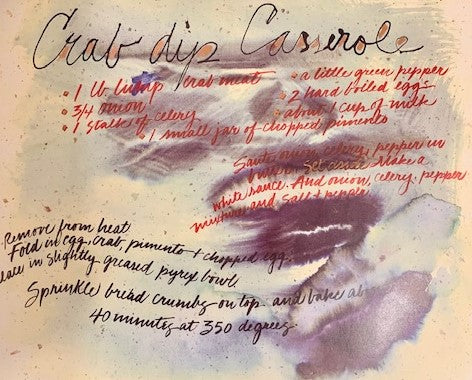 Crab dip Casserole
1 lb lump crab meat
3/4 onion
1 stalk of celery
a little green pepper
2 hard boiled eggs
about 1 cup of milk
1 small jar of chopped pimento
Sauté onion, celery, pepper in
butter. Set aside. Make a
white sauce. And onion, celery, pepper
mixture and salt + pepper
Remove from heat
Fold in egg, crab, pimento + chopped egg.
in slightly greased pyrex bowl.
Sprinkle bread crumbs on top and bake
40 minutes at 350 degrees